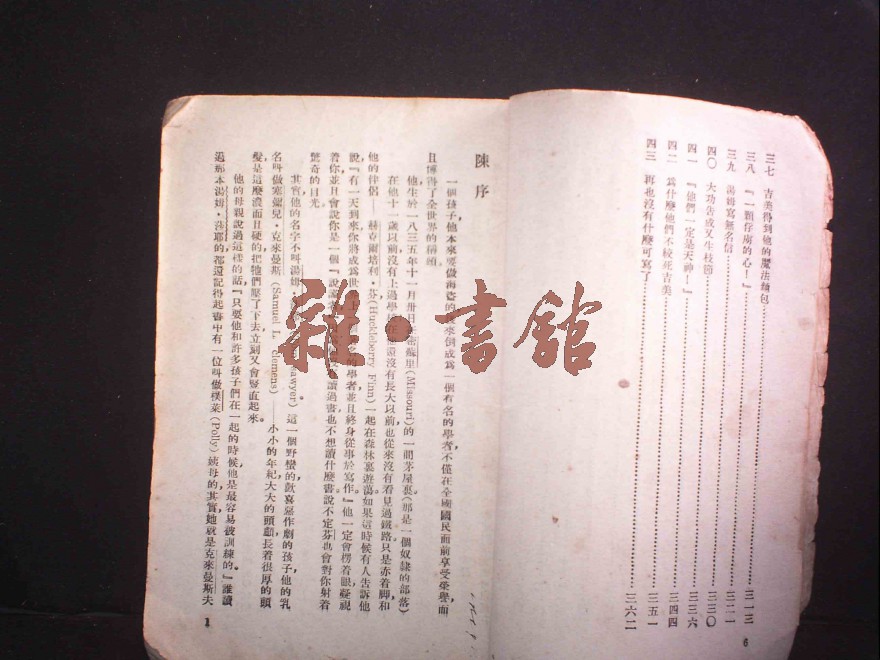 三七　吉美得到他的魔法麵包……三一三
三八　「一顆俘虜的心！」……
三九　湯姆寫無名信……三二二
四〇　大功告成又生枝節……三三〇
四一　「他們一定是天神！」……三三六
四二　爲什麼他們不絞死吉美……三四四
四三　再也沒有什麼可寫了……三五一
三六二
6
陳序
一個孩子他本來要做海盜的後來倒成爲一個有名的學者，不僅在全國國民面前享受榮譽，而
且博得了全世界的稱頌。
他生於一八三五年十一月卅日在密蘇里(Missouri)的一間茅屋裏(那是一個奴隸的部落)
在他十一歲以前，沒有上過學，還沒有長大以前，也從來沒有看見過鐵路。只是赤着脚和
他的伴侶——赫克爾培利·芬(Huckleberry Finn)一起在森林裏遊蕩。如果這時候有人告訴他
說：『有一天到來，你將成爲世的學者，並且終身從事於寫作。』他一定會楞着眼凝視
着你，並且會說你是一個『說謊讀過書，也不想讀什麼書，說不定芬也會對你射着
驚奇的目光。
其實，他的名字不叫湯姆·wyer)這一個野蠻的歡喜惡作劇的孩子，他的乳
名叫做塞彌兒·克來曼斯(Samuel L. clemens)——小小的年紀，大大的頭顱，長着很厚的頭
髮，是這麼濃而且硬的，把牠們壓了下去，立刻又會豎直起來。
他的母親說過這樣的話：『只要他和許多孩子們在一起的時候，他是最容易被訓練的。』誰讀
過那本湯姆·莎耶的，都還記得起書中有一位叫做樸萊(Polly)姨母的，其實她就是克來曼斯夫
1
雜·書館